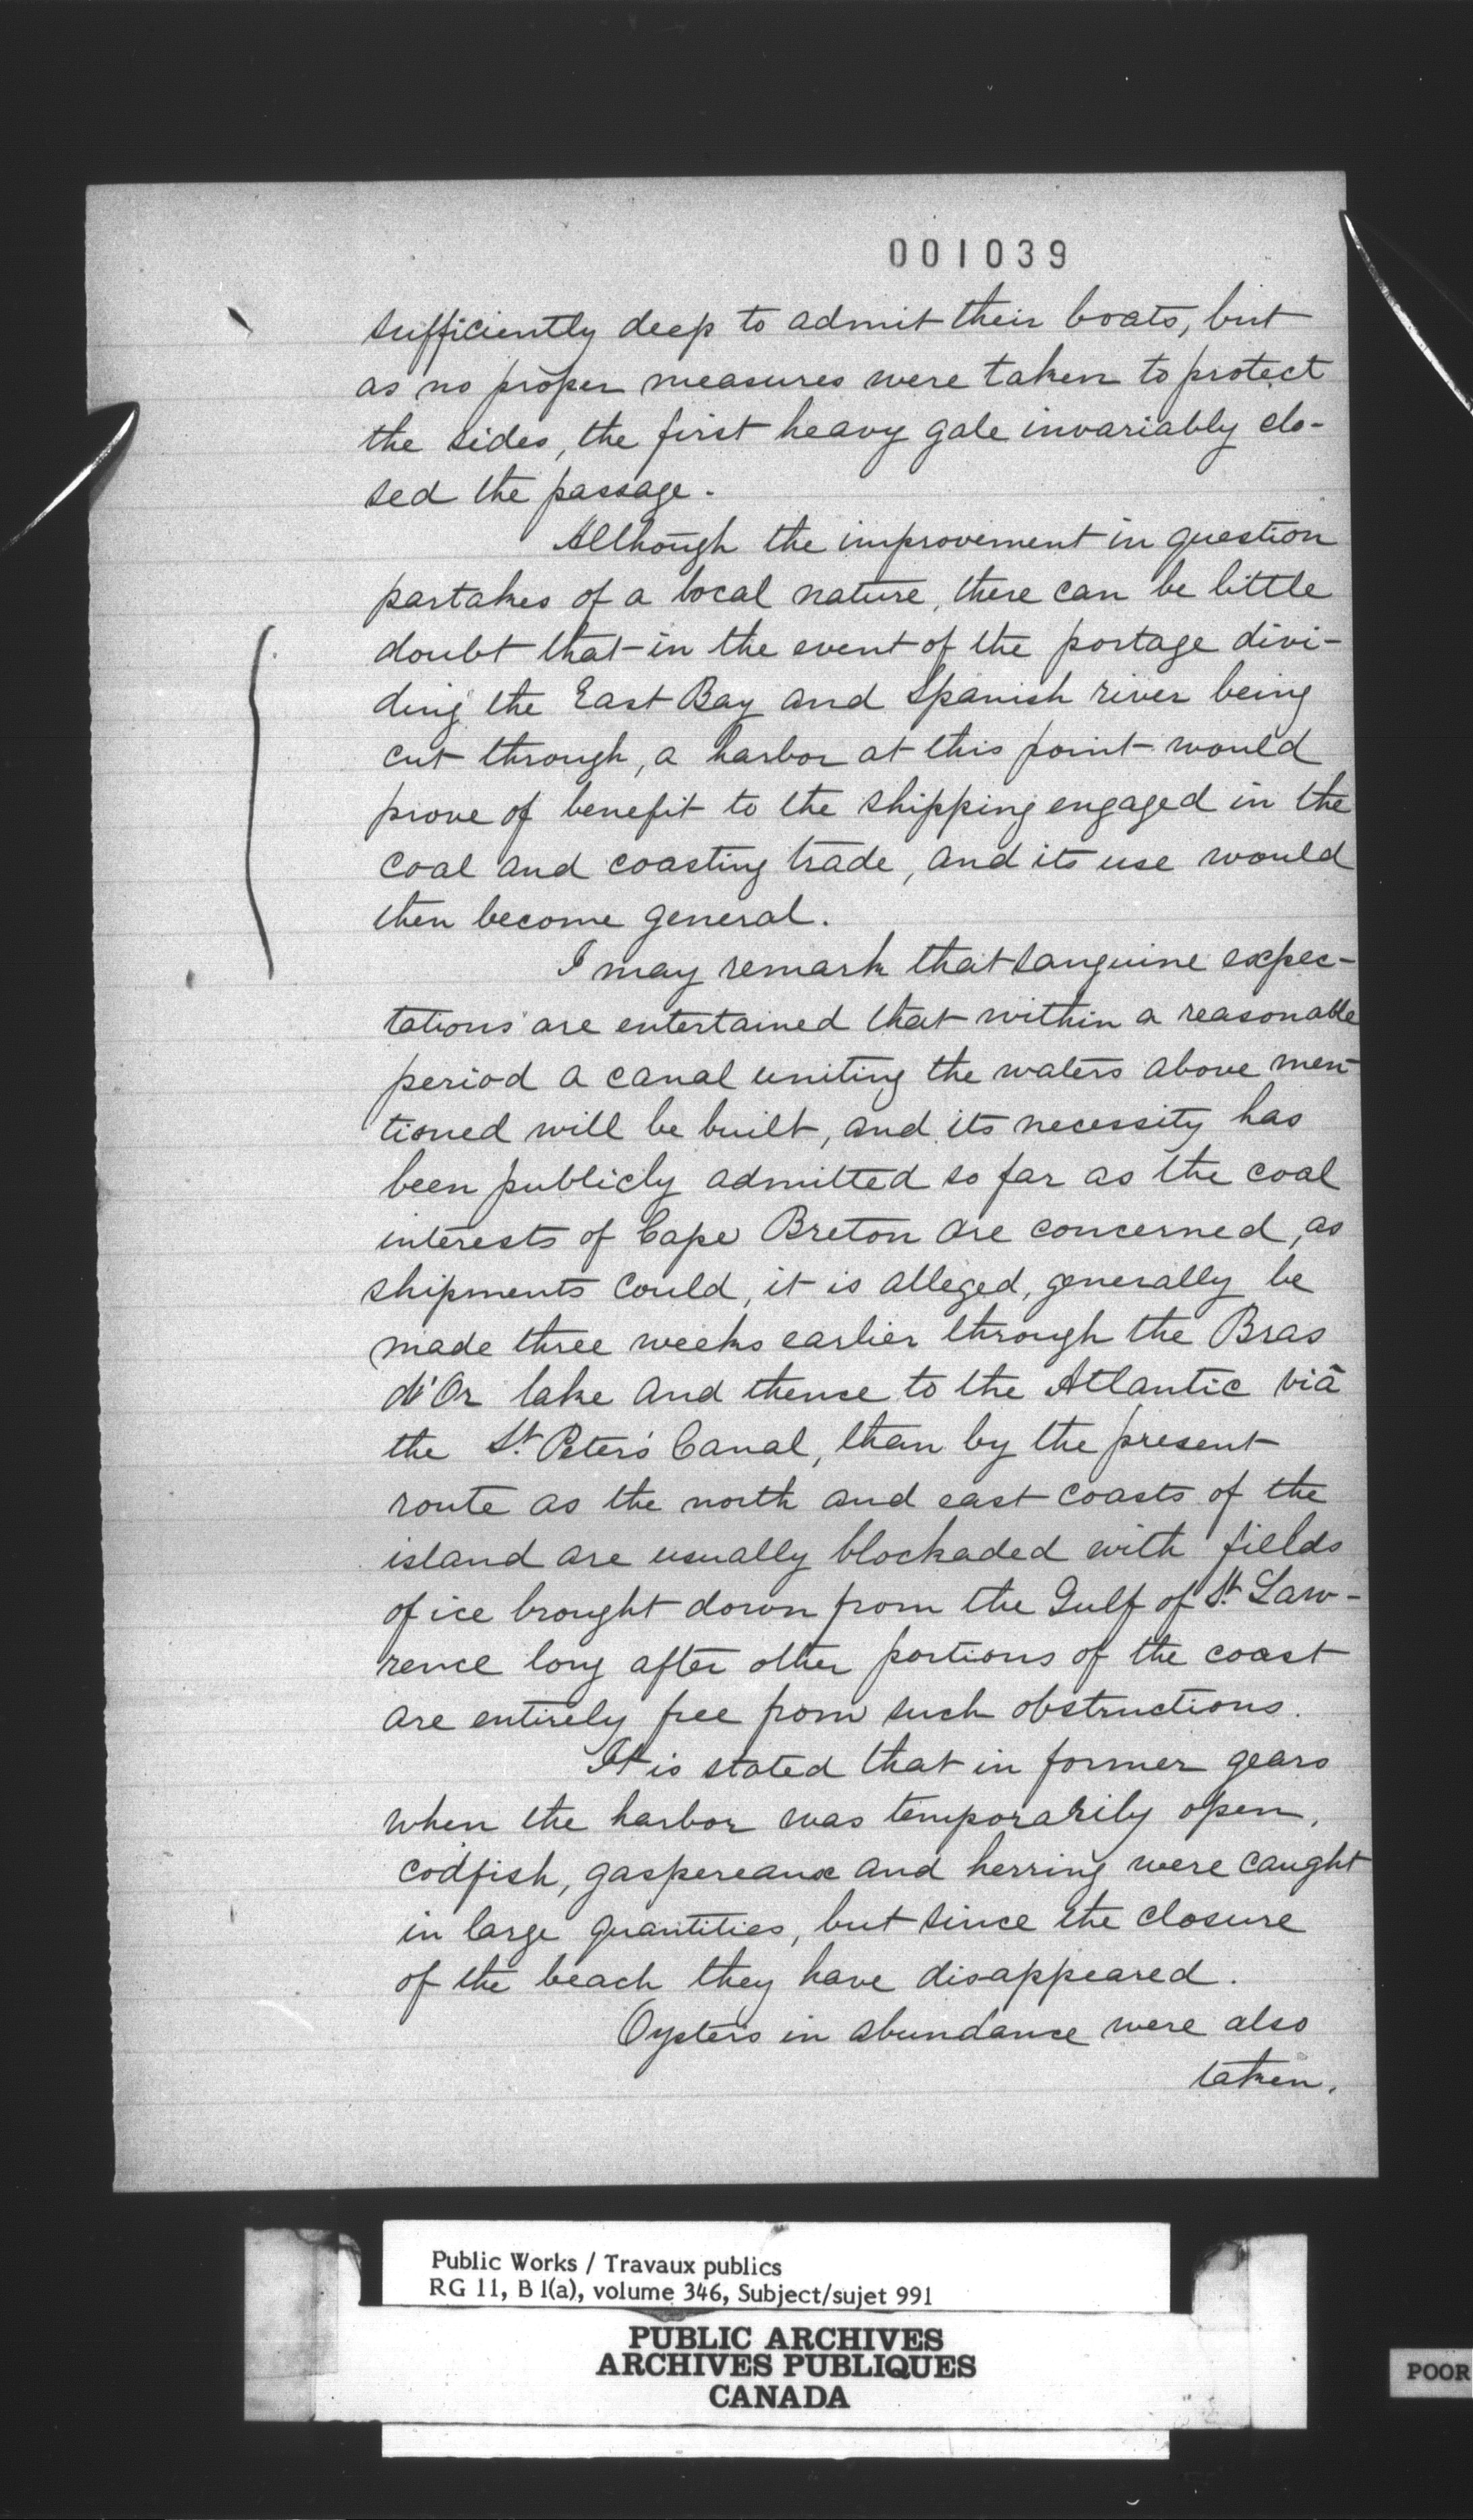 001039
sufficiently deep to admit their boats, but
as no proper measures were taken to protect
the sides, the first heavy gale invariably clo-
sed the passage.
Although the improvement in question
partakes of a local nature, there can be little
doubt that in the event of the portage divi-
ding the East Bay and Spanish river being
cut through, a harbor at this point would
prove of benefit to the shipping engaged in the
coal and coasting trade, and its use would
then become general.
I may remark that sanguine expec-
tations are entertained that within a reasonable
period a canal uniting the waters above men-
tioned will be built, and its necessity has
been publicly admitted so far as the coal
interests of Cape Breton are concerned, as
shipments could, it is alleged, generally be
made three weeks earlier through the Bras
d'Or lake and thence to the Atlantic viâ
the St. Peter's Canal, than by the present
route as the north and east coasts of the
island are usually blockaded with fields
of ice brought down from the Gulf of St. Law-
rence long after other portions of the coast
are entirely free from such obstructions.
It is stated that in former years
when the harbor was temporarily open,
codfish, gaspereaux and herring were caught
in large quantities, but since the closure
of the beach they have disappeared.
Oysters in abundance were also
taken.
Public Works / Travaux publics
RG 11, B 1(a), volume 346, Subject/sujet 991
PUBLIC ARCHIVES
ARCHIVES PUBLIQUES
CANADA
POOR